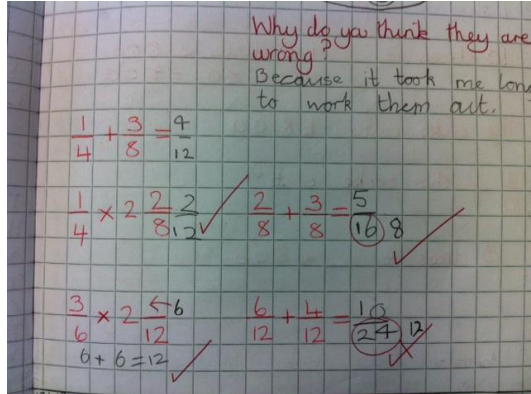 Why do you think they are
wrong?
Because it took me long
to work them out.
1/4 + 3/8 = 4/12
1/4 × 2 2/8 2/12 2/8 + 3/8 = 5/16 8
3/6 × 2 ←6/12 6/12 + 4/12 = 10/24 12
6 + 6 = 12